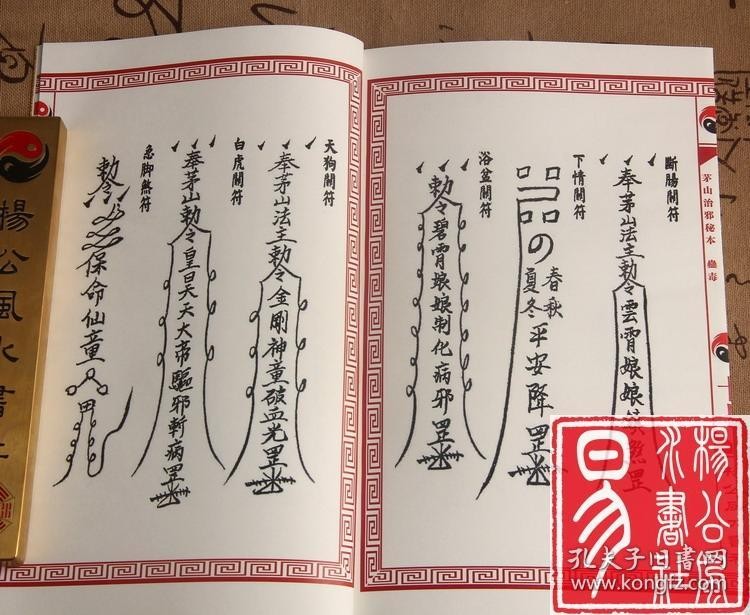 茅山治邪秘本 蠱毒
斷腸關符
奉茅山法主勅令雲霄娘娘
煞罡
下情關符
の
春秋
夏冬
平安降罡
浴盆關符
勅令碧霄娘娘制化病邪罡
天狗關符
奉茅山法主勅令金剛神童破血光罡
白虎關符
奉茅山勅令皇旦天天大帝驅邪斬病罡
急脚煞符
勅令
保命仙童
楊公風水書
楊公風水書莊
孔夫子旧書网
www.kongfz.com